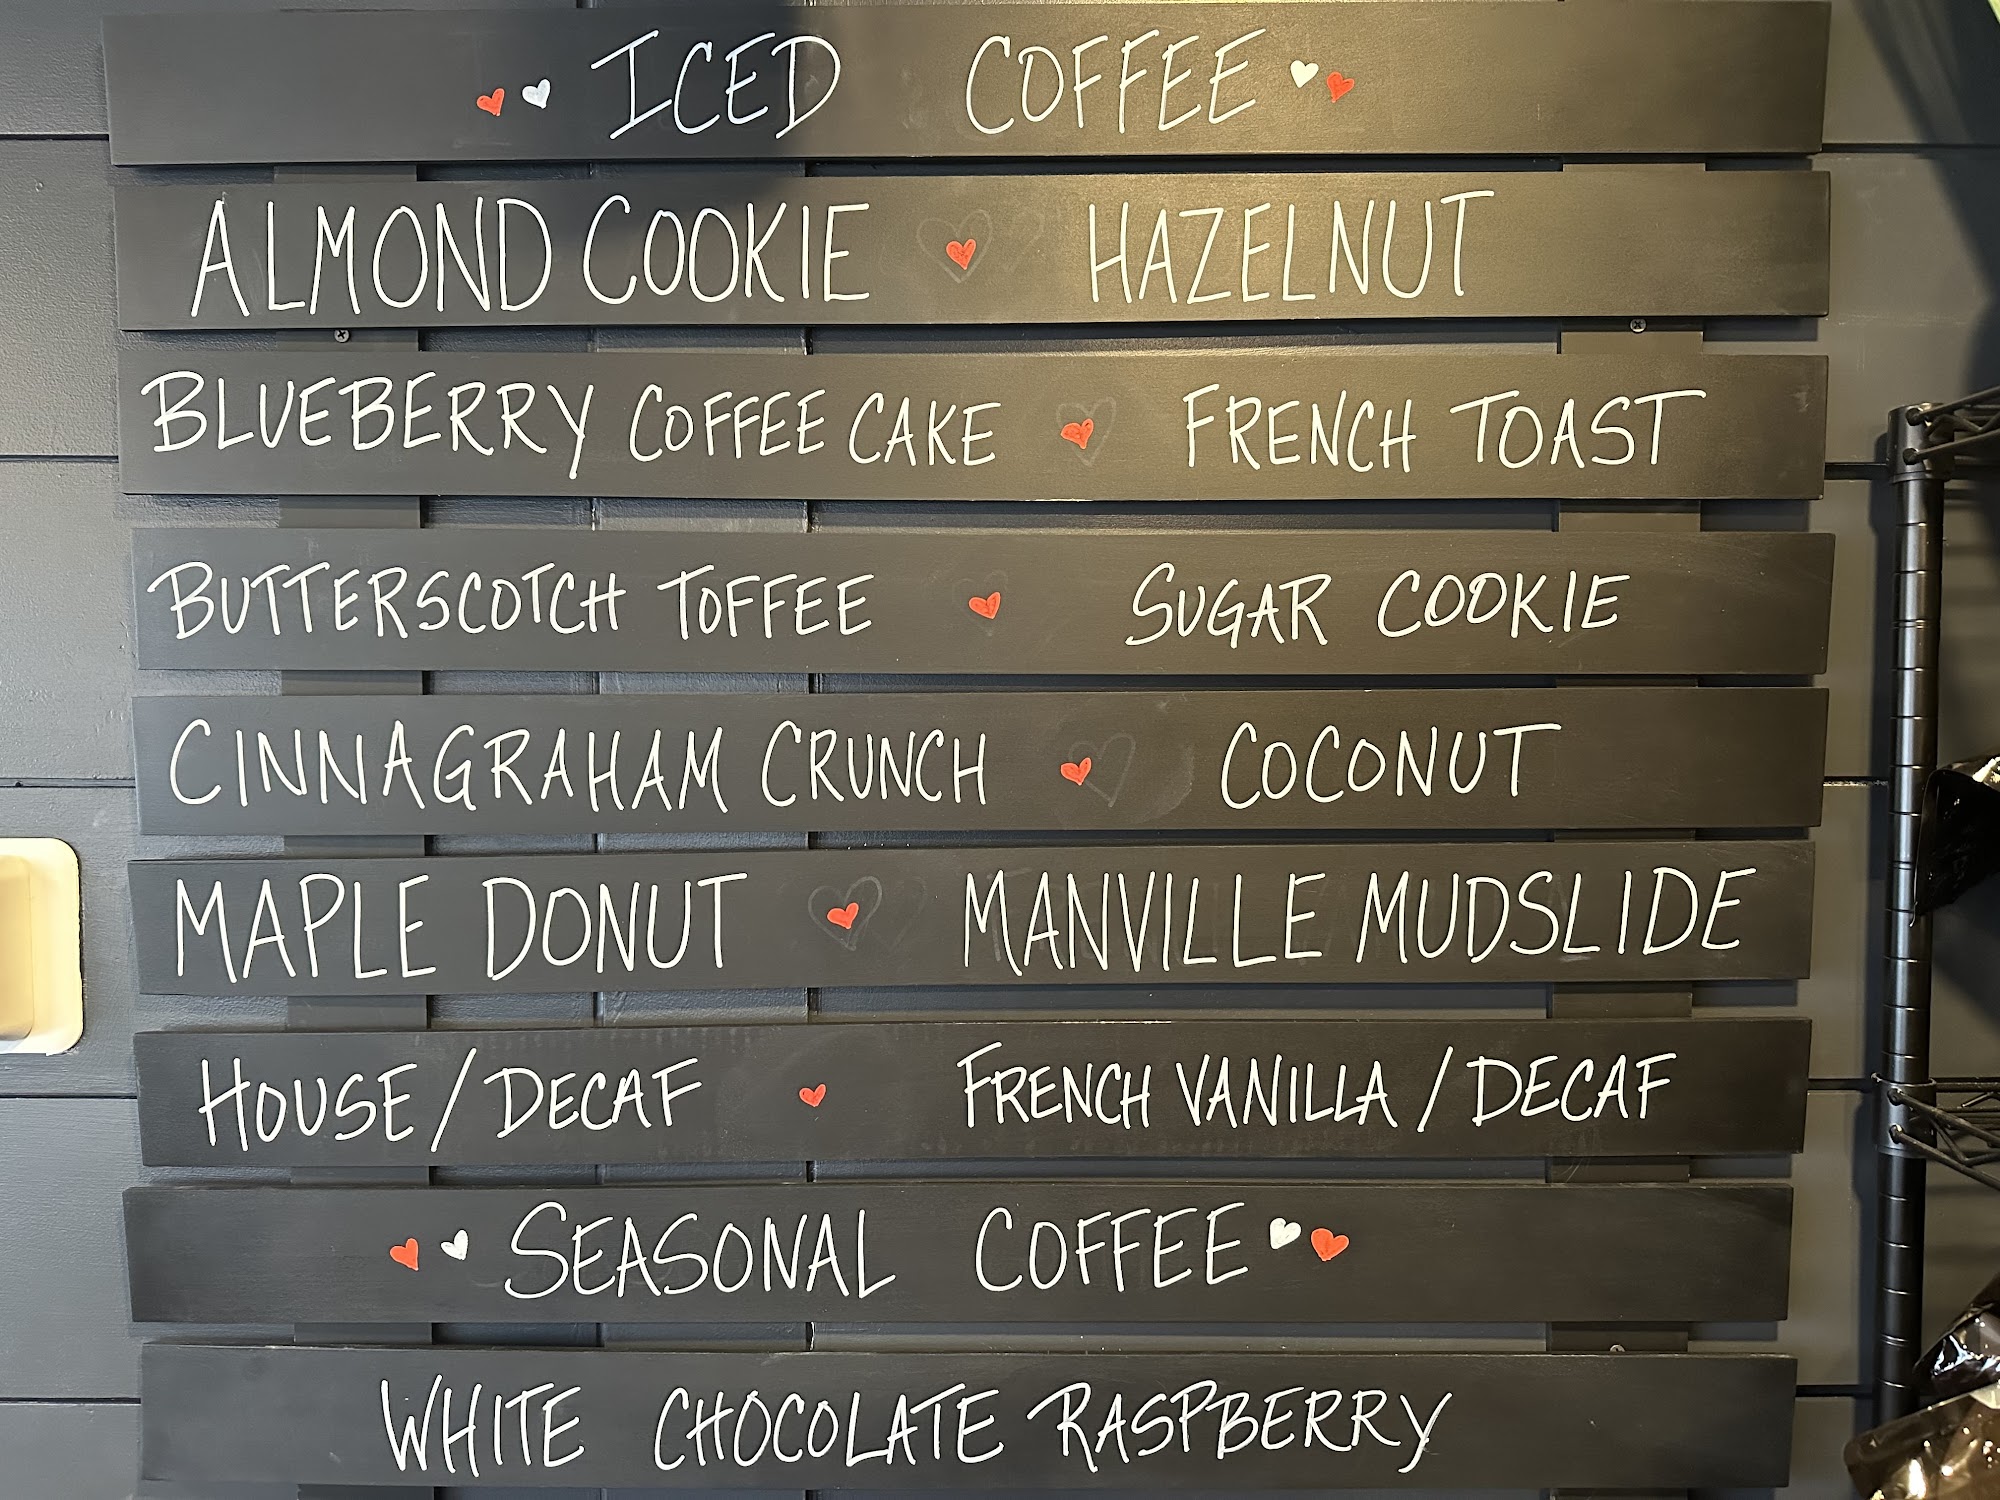 ICED COFFEE
ALMOND COOKIE HAZELNUT
BLUEBERRY COFFEE CAKE FRENCH TOAST
BUTTERSCOTCH TOFFEE SUGAR COOKIE
CINNAGRAHAM CRUNCH COCONUT
MAPLE DONUT MANVILLE MUDSLIDE
HOUSE/DECAF FRENCH VANILLA/DECAF
SEASONAL COFFEE
WHITE CHOCOLATE RASPBERRY